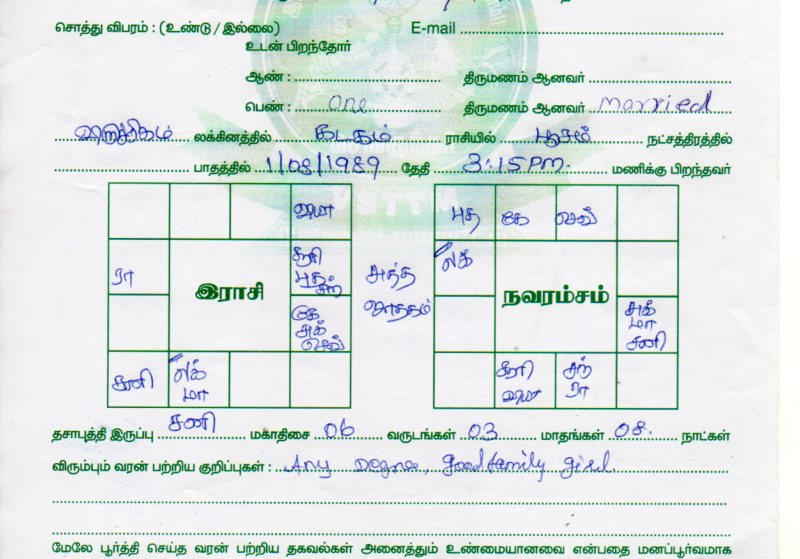 சொத்து விபரம் : (உண்டு / இல்லை) E-mail
உடன் பிறந்தோர்
ஆண் : திருமணம் ஆனவர்
பெண் : one திருமணம் ஆனவர் married
லக்கினத்தில் கடகம் ராசியில் பூசம் நட்சத்திரத்தில்
பாதத்தில் 1/08/1989 தேதி 3:15PM. மணிக்கு பிறந்தவர்
வியா
புத கே செவ்
சூரி
புத
ரா இராசி
அந்த
ஜாதகம்
லக் நவரம்சம்
கே
சுக்
செவ்
சுக்
மா
சனி
சனி லக்
மா
சூரி
வியா
சந்
ரா
தசாபுத்தி இருப்பு சனி மகாதிசை 06 வருடங்கள் 03 மாதங்கள் 08. நாட்கள்
விரும்பும் வரன் பற்றிய குறிப்புகள் : Any Degree, Good family girl.
மேலே பூர்த்தி செய்த வரன் பற்றிய தகவல்கள் அனைத்தும் உண்மையானவை என்பதை மனப்பூர்வமாக